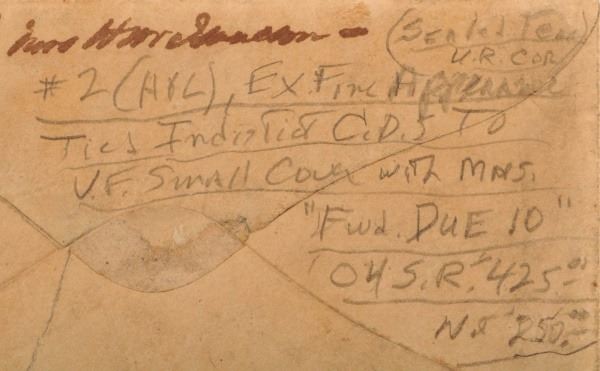 (Sealed Tear
U.R. Cor)
#2 (A&L), Ex. Fine Appearance
Ties Indistict C.D.S To
V.F. Small Cover with Mns.
"Fwd. DUE 10"
04 S.R. $425.00
Nt $250.00